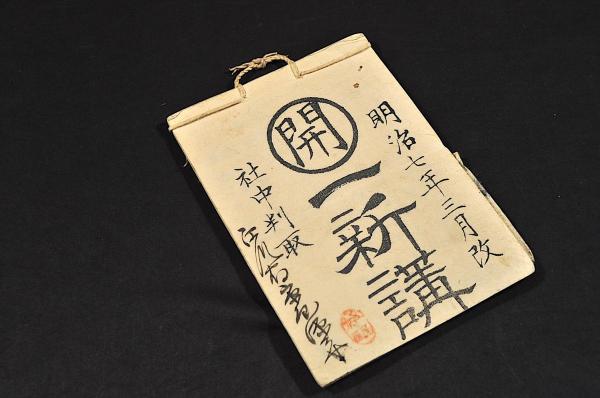 明治七年三月改
開
一新講
社中判取